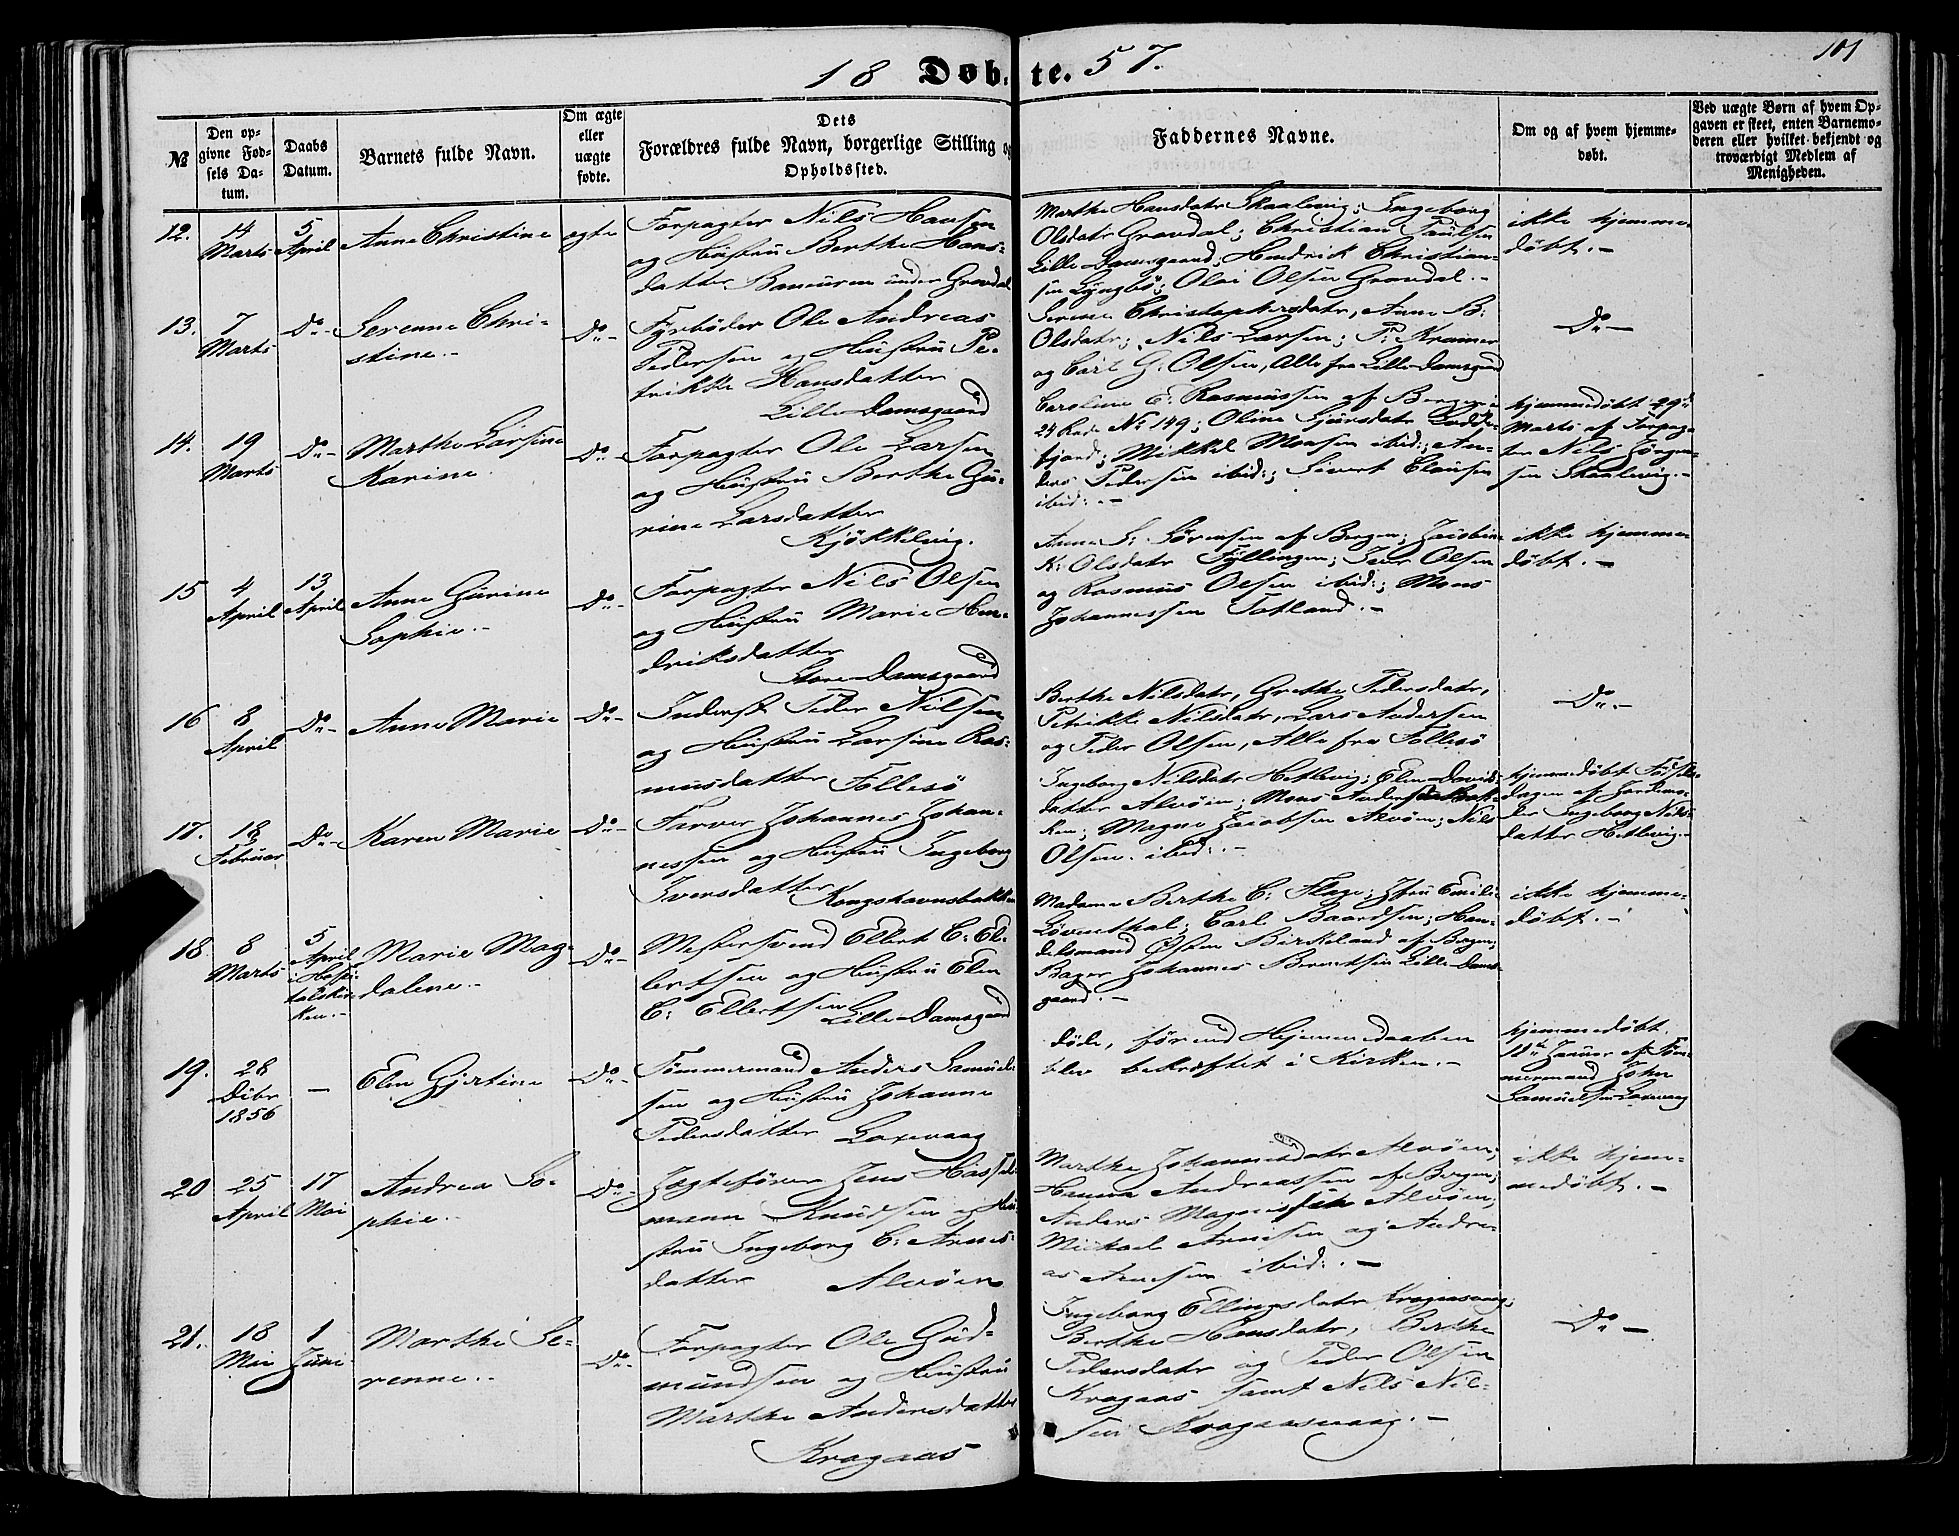 101
18 Døbte. 57.
№
Den opgivne Fødsels Datum.
Daabs Datum.
Barnets fulde Navn.
Om ægte eller uægte fødte.
Dets Forældres fulde Navn, borgerlige Stilling og Opholdssted.
Faddernes Navne.
Om og af hvem hjemmedøbt.
Ved uægte Børn af hvem Opgaven er skeet, enten Barnemoderen eller hvilket bekjendt og troværdigt Medlem af Menigheden.
12.
14 Marts
5 April
Anne Christine
egte
Forpagter Nils Hansen
og Hustru Berthe Hans-
datter Baneuren under Gravdal
Marthe Hansdatr Skaalevig; Ingeborg
Olsdatr Gravdal; Christian Paulsen
Lille Damsgaard; Hendrick Christian-
sen Lyngbö; Olai Olsen Gravdal.-
ikke hjemme-
døbt.-
13.
7 Marts
Do-
Serenne Chri-
stine.-
Do-
Fyrbøder Ole Andreas
Pedersen og Hustru Pe-
trikke Hansdatter
Lille Damsgaard
Serene Christophersdatr, Anne B:
Olsdatr; Nils Larsen; P: Kramer
og Carl G: Olsen, Alle fra Lille-Damsgaard
Do-
14.
19 Marts
Do-
Marthe Larsine
Karine.
Do-
Forpagter Ole Larsen
og Hustru Berthe Gu-
rine Larsdatter
Kjøkkelvig.
Caroline E: Rasmussen af Bergen
24 Rode No 149; Oline Sjursdatr Lodde-
fjord; Mikkel Monsen ibid:; An-
ders Pedersen ibid:; Sivert Clausen
ibid:.-
hjemmedøbt 29de
Marts af Forpag-
ter Nils Jørgen-
sen Skaalevig.-
15
4 April
13 April
Anne Gurine
Sophie.-
Do-
Forpagter Nils Olsen
og Hustru Marie Hen-
driksdatter
Store-Damsgaard
Anne S: Sørensen af Bergen; Jacobine
K: Olsdatr Fyllingen; Iver Olsen
og Rasmus Olsen ibid:; Mons
Johannessen Totland.-
ikke hjemme-
døbt.-
16
8 April
Do-
Anne Marie
Do-
Inderst Peder Nilsen
og Hustru Larsine Ras-
musdatter Follesö
Berthe Nilsdatr, Grethe Pedersdatr,
Petrikke Nilsdatr, Lars Andersen
og Peder Olsen, Alle fra Follesö
Do-
17.
18 Februar
Do-
Karen Marie
Do-
Farver Johannes Johan-
nessen og Hustru Ingeborg
Iversdatter Kongshavnsbakken
Ingeborg Nilsdatr Hetlevig; Elen Davids-
datter Alvøen; Mons Andersen Bak-
ken; Magne Jacobsen Alvøen; Nils
Olsen ibid:.-
hjemmedøbt Fødsels-
dagen af Jordemo-
der Ingeborg Nils-
datter Hetlevig.-
18
8 Marts
5 April
i Hospi-
talskir-
ken.-
Marie Mag-
dalene.-
Do-
Mestersvend Ellert C: El-
lertsen og Hustru Elen
C: Ellertsen Lille-Damsgaard
Madame Berthe C: Flage; Jfru Emilie
Løventhal; Carl Baardsen; Han-
delsmand Østen Birkeland af Bergen;
Bager Johannes Berentsen Lille Dams-
gaard.-
ikke hjemme-
døbt.-
19.
28 Dcbr 1856
-
Elen Gjertine
Do-
Tømmermand Anders Samuel-
sen og Hustru Johanne
Pedersdatter Loxevaag
døde, førend Hjemmedaaben
blev bekræftet i Kirken.-
hjemmedøbt
11te Januar af Tøm-
mermand John
Samuelsen Loxevaag
20
25 April
17 Mai
Andrea So-
phie.-
Do-
Jagtefører Jens Hassel-
mann Knudsen og Hu-
stru Ingeborg C: Arnes-
datter Alvøen
Marthe Johannesdatr Alvøen;
Hanna Andreassen af Bergen;
Anders Magnessen Alvøen;
Mickael Arnesen og Andre-
as Arnesen ibid:.-
ikke hjem-
medøbt.-
21.
18 Mai
1 Juni
Marthe Se-
renne.-
Do-
Forpagter Ole Gud-
mundsen og Hustru
Marthe Andersdatter
Kragaas
Ingeborg Ellingsdatr Kragaasvaag;
Berthe Hansdatr, Berthe
Pedersdatr og Peder Olsen
Kragaas samt Nils Nil-
sen Kragaasvaag.-
Do-